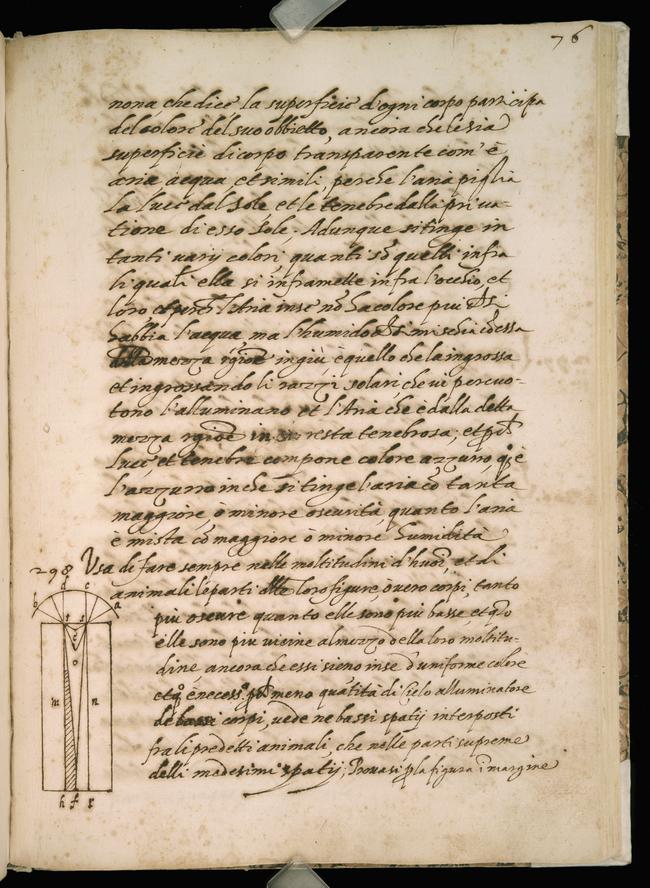 76
nona, che dice la superficie d'ogni corpo participa
del colore del suo obbietto, ancora che le sia
superficie di corpo transparente com' è
aria, acqua, et simili, perche l'aria piglia
la luce dal Sole, et le tenebre dalla priva-
tione di esso Sole. Adunque si tinge in
tanti varij colori, quanti sõ quelli infra
li quali ella si inframette infra l'occhio, et
loro l'Aria in se nõ ha colore piu
habbia l'acqua, ma l'humido si mischia cõ essa
mezza in giù è quello che la ingrossa
et ingrossando li razzi solari che vi percuo-
tono l'alluminano et l'Aria che è dalla detta
mezza in su resta tenebrosa, et
luce et tenebre compone colore azzurro, è
l'azzurro in che si tinge l'aria cõ tanta
maggiore, ò minore oscurità, quanto l'aria
è mista cõ maggiore ò minore humidità
298 Usa di fare sempre nelle moltitudini d'huoī et di
animali le parti delle loro figure, overo corpi, tanto
più oscure quanto elle sono più basse, et
elle sono più vicine al mezzo della loro moltitu-
dine, ancora che essi sieno in se d'uniforme colore
è meno quãtità di Cielo alluminatore
de bassi corpi, vede ne bassi spatij interposti
fra li predetti animali, che nelle parti supreme
delli madesimi spatij; Provasi la figura ī margine
d c
b a
r s
e
o
m n
h f g